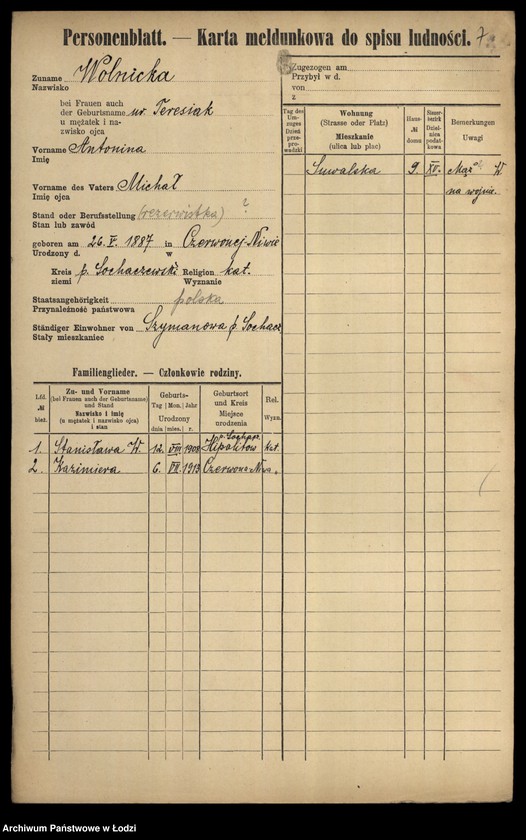 Personenblatt. — Karta meldunkowa do spisu ludności. 7
Zuname Wolnicka
Nazwisko
bei Frauen auch
der Geburtsname ur. Teresiak
u mężatek i na-
zwisko ojca
Vorname Antonina
Imię
Vorname des Vaters Michał
Imię ojca
Stand oder Berufsstellung (rezerwistka) ?
Stan lub zawód
geboren am 26. V. 1887 in Czerwonej-Niwie
Urodzony d. w
Kreis p. Sochaczewski Religion kat.
ziemi Wyznanie
Staatsangehörigkeit polska
Przynależność państwowa
Ständiger Einwohner von Szymanowa p. Sochacz
Stały mieszkaniec
Familienglieder. — Członkowie rodziny.
Lfd. № bież.
Zu- und Vorname
(bei Frauen auch der Geburtsname)
und Stand
Nazwisko i imię
(u mężatek i nazwisko ojca)
i stan
Geburts-
Tag Mon. Jahr
Urodzony
dnia mies. r.
Geburtsort
und Kreis
Miejsce
urodzenia
Rel.
Wyzn.
1. Stanisława W. 12. VIII 1908 p. Sochacz. Hipolitów kat.
2. Kazimiera 6. VII. 1913 Czerwona-Niwa "
Zugezogen am
Przybył w d.
von
z
Tag des
Um-
zuges
Dzień
prze-
prowadzki
Wohnung
(Strasse oder Platz)
Mieszkanie
(ulica lub plac)
Haus-
№
domu
Steuer-
bezirk
Dziel-
nica
podat-
kowa
Bemerkungen
Uwagi
Suwalska 9. XV. Mąż W
na wojnie.
Archiwum Państwowe w Łodzi